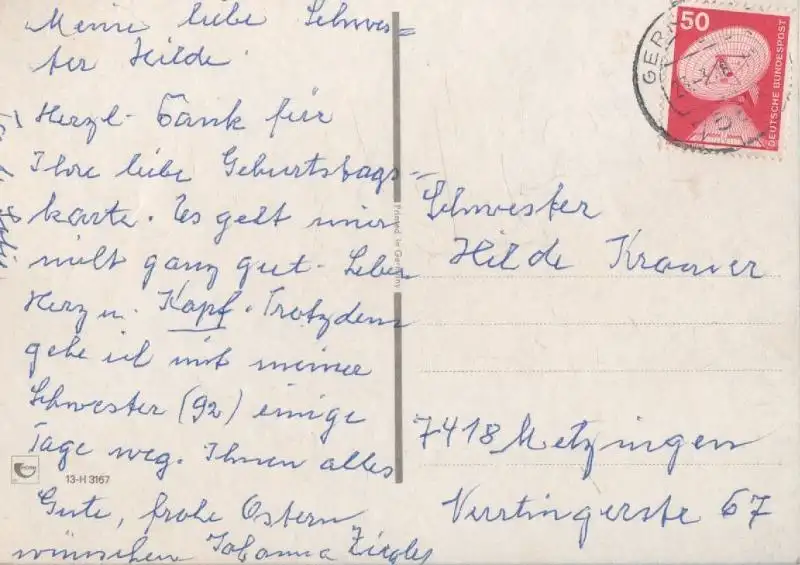 Meine liebe Schwes=
ter Hilde.
Herzl. Dank für
Ihre liebe Geburtstags=
karte. Es geht mir
nicht ganz gut. Leber
Herz u. Kopf. Trotzdem
gehe ich mit meiner
Schwester (92) einige
Tage weg. Ihnen alles
Gute, frohe Ostern
wünschen Johanna Ziegler
13-H 3167
Printed in Germany
50
DEUTSCHE BUNDESPOST
GER
Schwester
Hilde Kramer
7418 Metzingen
Nürtingerstr 67